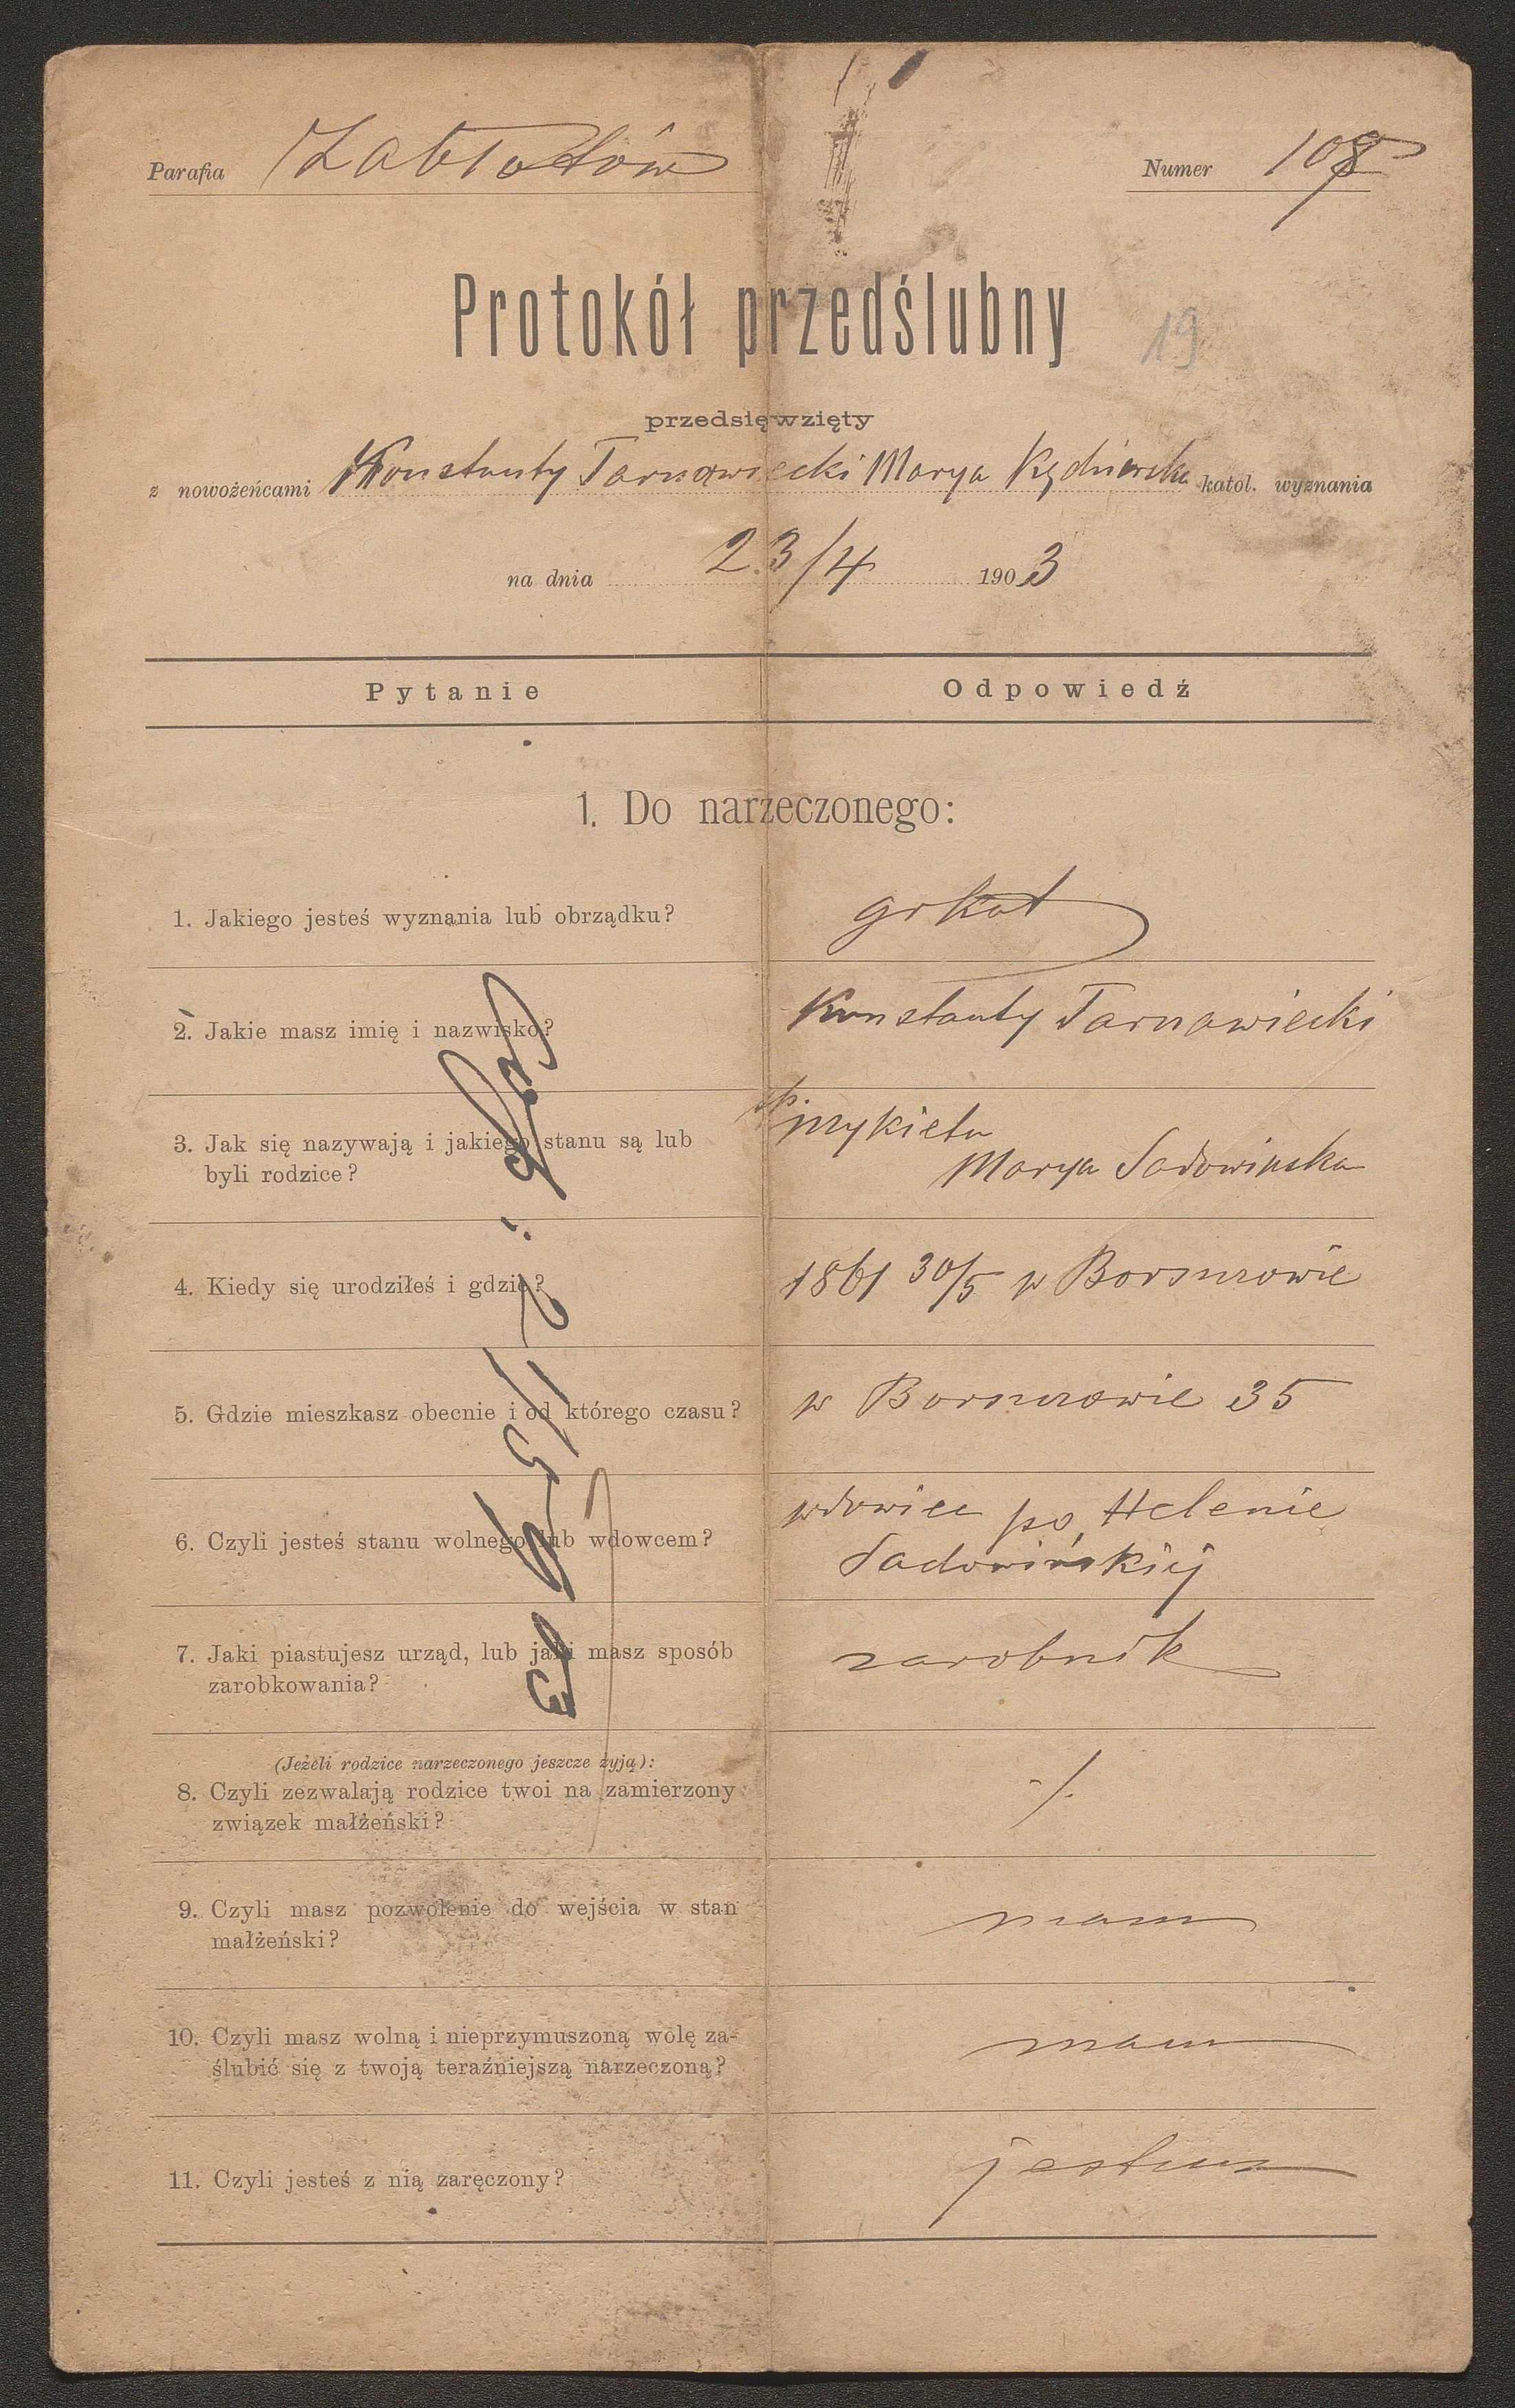 Parafia Zabłotów
Numer 108
Protokół przedślubny
19
przedsięwzięty
z nowożeńcami Konstanty Tarnawiecki Marya katol. wyznania
na dnia 23/4 1903
Pytanie Odpowiedź
1. Do narzeczonego:
1. Jakiego jesteś wyznania lub obrządku? grkat
2. Jakie masz imię i nazwisko? Konstanty Tarnawiecki
3. Jak się nazywają i jakiego stanu są lub
byli rodzice?
Marya Sadowińska
4. Kiedy się urodziłeś i gdzie? 1861 30/5 w Borszczowie
5. Gdzie mieszkasz obecnie i od którego czasu? w Borszczowie 35
6. Czyli jesteś stanu wolnego lub wdowcem? wdowiec po Helenie
Sadowińskiej
7. Jaki piastujesz urząd, lub jaki masz sposób
zarobkowania? zarobnik
(Jeżeli rodzice narzeczonego jeszcze żyją):
8. Czyli zezwalają rodzice twoi na zamierzony
związek małżeński? -/.
9. Czyli masz pozwolenie do wejścia w stan
małżeński? mam
10. Czyli masz wolną i nieprzymuszoną wolę za-
ślubić się z twoją teraźniejszą narzeczoną? mam
11. Czyli jesteś z nią zaręczony? jestem